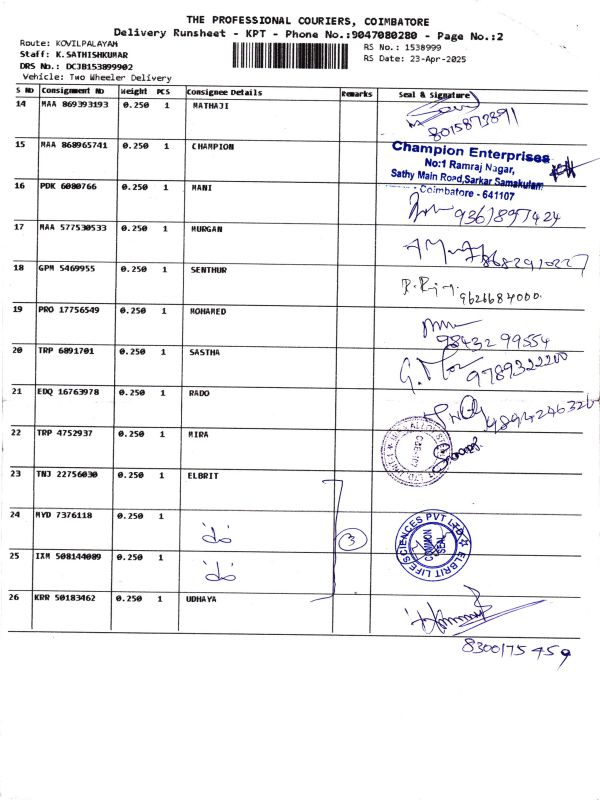 THE PROFESSIONAL COURIERS, COIMBATORE
Delivery Runsheet - KPT - Phone No.:9047080280 - Page No.:2
Route: KOVILPALAYAM
RS No.: 1538999
Staff: K.SATHISHKUMAR
RS Date: 23-Apr-2025
DRS No.: DCJB153899902
Vehicle: Two Wheeler Delivery
S No Consignment No Weight PCS Consignee Details Remarks Seal & Signature
14 MAA 869393193 0.250 1 MATHAJI
8015873891
15 MAA 868965741 0.250 1 CHAMPION
Champion Enterprises
No:1 Ramraj Nagar,
Sathy Main Road,Sarkar Samakulam
Coimbatore - 641107
16 PDK 6080766 0.250 1 MANI
9361897424
17 MAA 577530533 0.250 1 MURGAN
8682910227
18 GPM 5469955 0.250 1 SENTHUR
9626684000.
19 PRO 17756549 0.250 1 MOHAMED
98432 99554
20 TRP 6891701 0.250 1 SASTHA
9789322200
21 EDQ 16763978 0.250 1 RADO
22 TRP 4752937 0.250 1 MIRA
23 TNJ 22756030 0.250 1 ELBRIT
24 MYD 7376118 0.250 1 do
3
ELBRIT LIFE SCIENCES PVT LTD
COMMON
SEAL
25 IXM 508144089 0.250 1 do
26 KRR 50183462 0.250 1 UDHAYA
8300175459